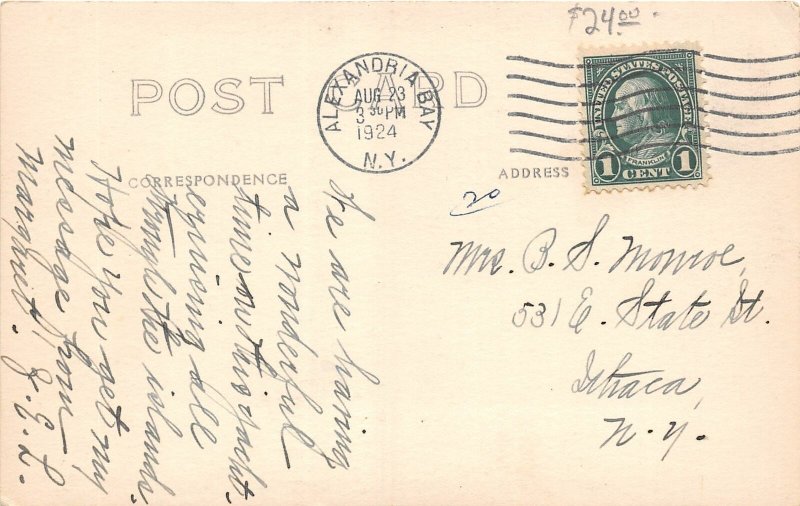 $24.00
POST CARD
ALEXANDRIA BAY
AUG 23
3 30 PM
1924
N.Y.
UNITED STATES POSTAGE
FRANKLIN
1 CENT 1
CORRESPONDENCE
ADDRESS
20
We are having
a wonderful
time on this yacht
cruising all
among the islands.
Hope you get my
message from
Margaret. J. E. L.
Mrs. B. S. Monroe,
531 E. State St.
Ithaca,
N.Y.